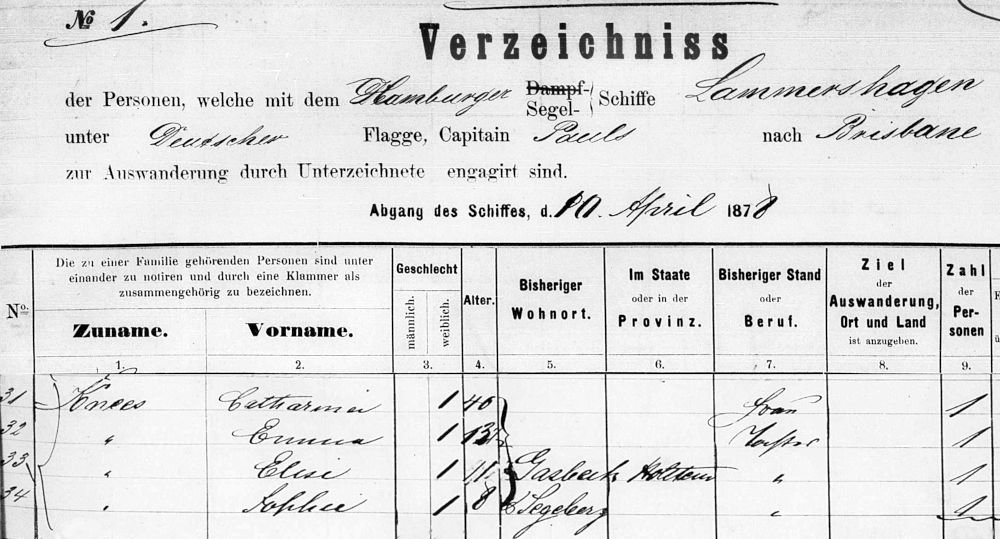 No 1.
Verzeichniss
der Personen, welche mit dem Hamburger Dampf-/Segel- Schiffe Lammershagen
unter Deutscher Flagge, Capitain Pauls nach Brisbane
zur Auswanderung durch Unterzeichnete engagirt sind.
Abgang des Schiffes, d. 10. April 1878
Die zu einer Familie gehörenden Personen sind unter
einander zu notiren und durch eine Klammer als
zusammengehörig zu bezeichnen.
No. Zuname. Vorname. Geschlecht männlich. weiblich. Alter. Bisheriger Wohnort. Im Staate oder in der Provinz. Bisheriger Stand oder Beruf. Ziel der Auswanderung, Ort und Land ist anzugeben. Zahl der Personen
1. 2. 3. 4. 5. 6. 7. 8. 9.
31 Knees Catharina 1 40 Frau 1
32 " Emma 1 13 1
33 " Elise 1 11 " 1
34 " Sophie 1 8 Segeberg " 1